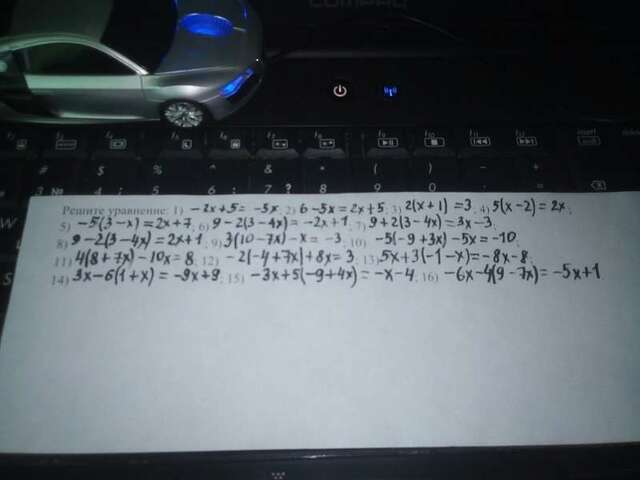 COMPAQ
Решите уравнение: 1) -2x+5= -5x; 2) 6-5x=2x+5; 3) 2(x+1)=3; 4) 5(x-2)=2x;
5) -5(3-x)=2x+7; 6) 9-2(3-4x)=-2x+1; 7) 9+2(3-4x)=3x-3;
8) 9-2(3-4x)=2x+1; 9) 3(10-7x)-x= -3; 10) -5(-9+3x)-5x=-10;
11) 4(8+7x)-10x=8; 12) -2(-4+7x)+8x=3; 13) 5x+3(-1-x)=-8x-8;
14) 3x-6(1+x)= -9x+9; 15) -3x+5(-9+4x)=-x-4; 16) -6x-4(9-7x)=-5x+1